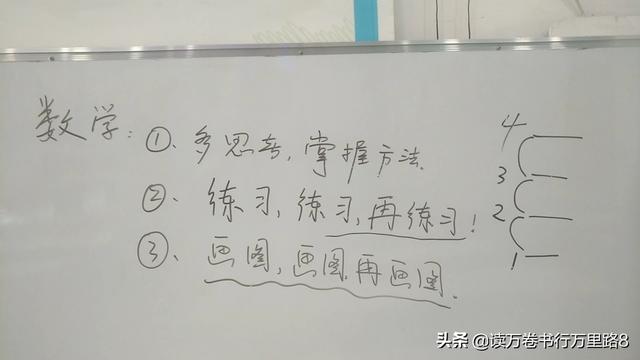 数学:①、多思考,掌握方法.
②、练习,练习,再练习!
③、画图,画图,再画图.
4
3
2
1
头条 @读万卷书行万里路8